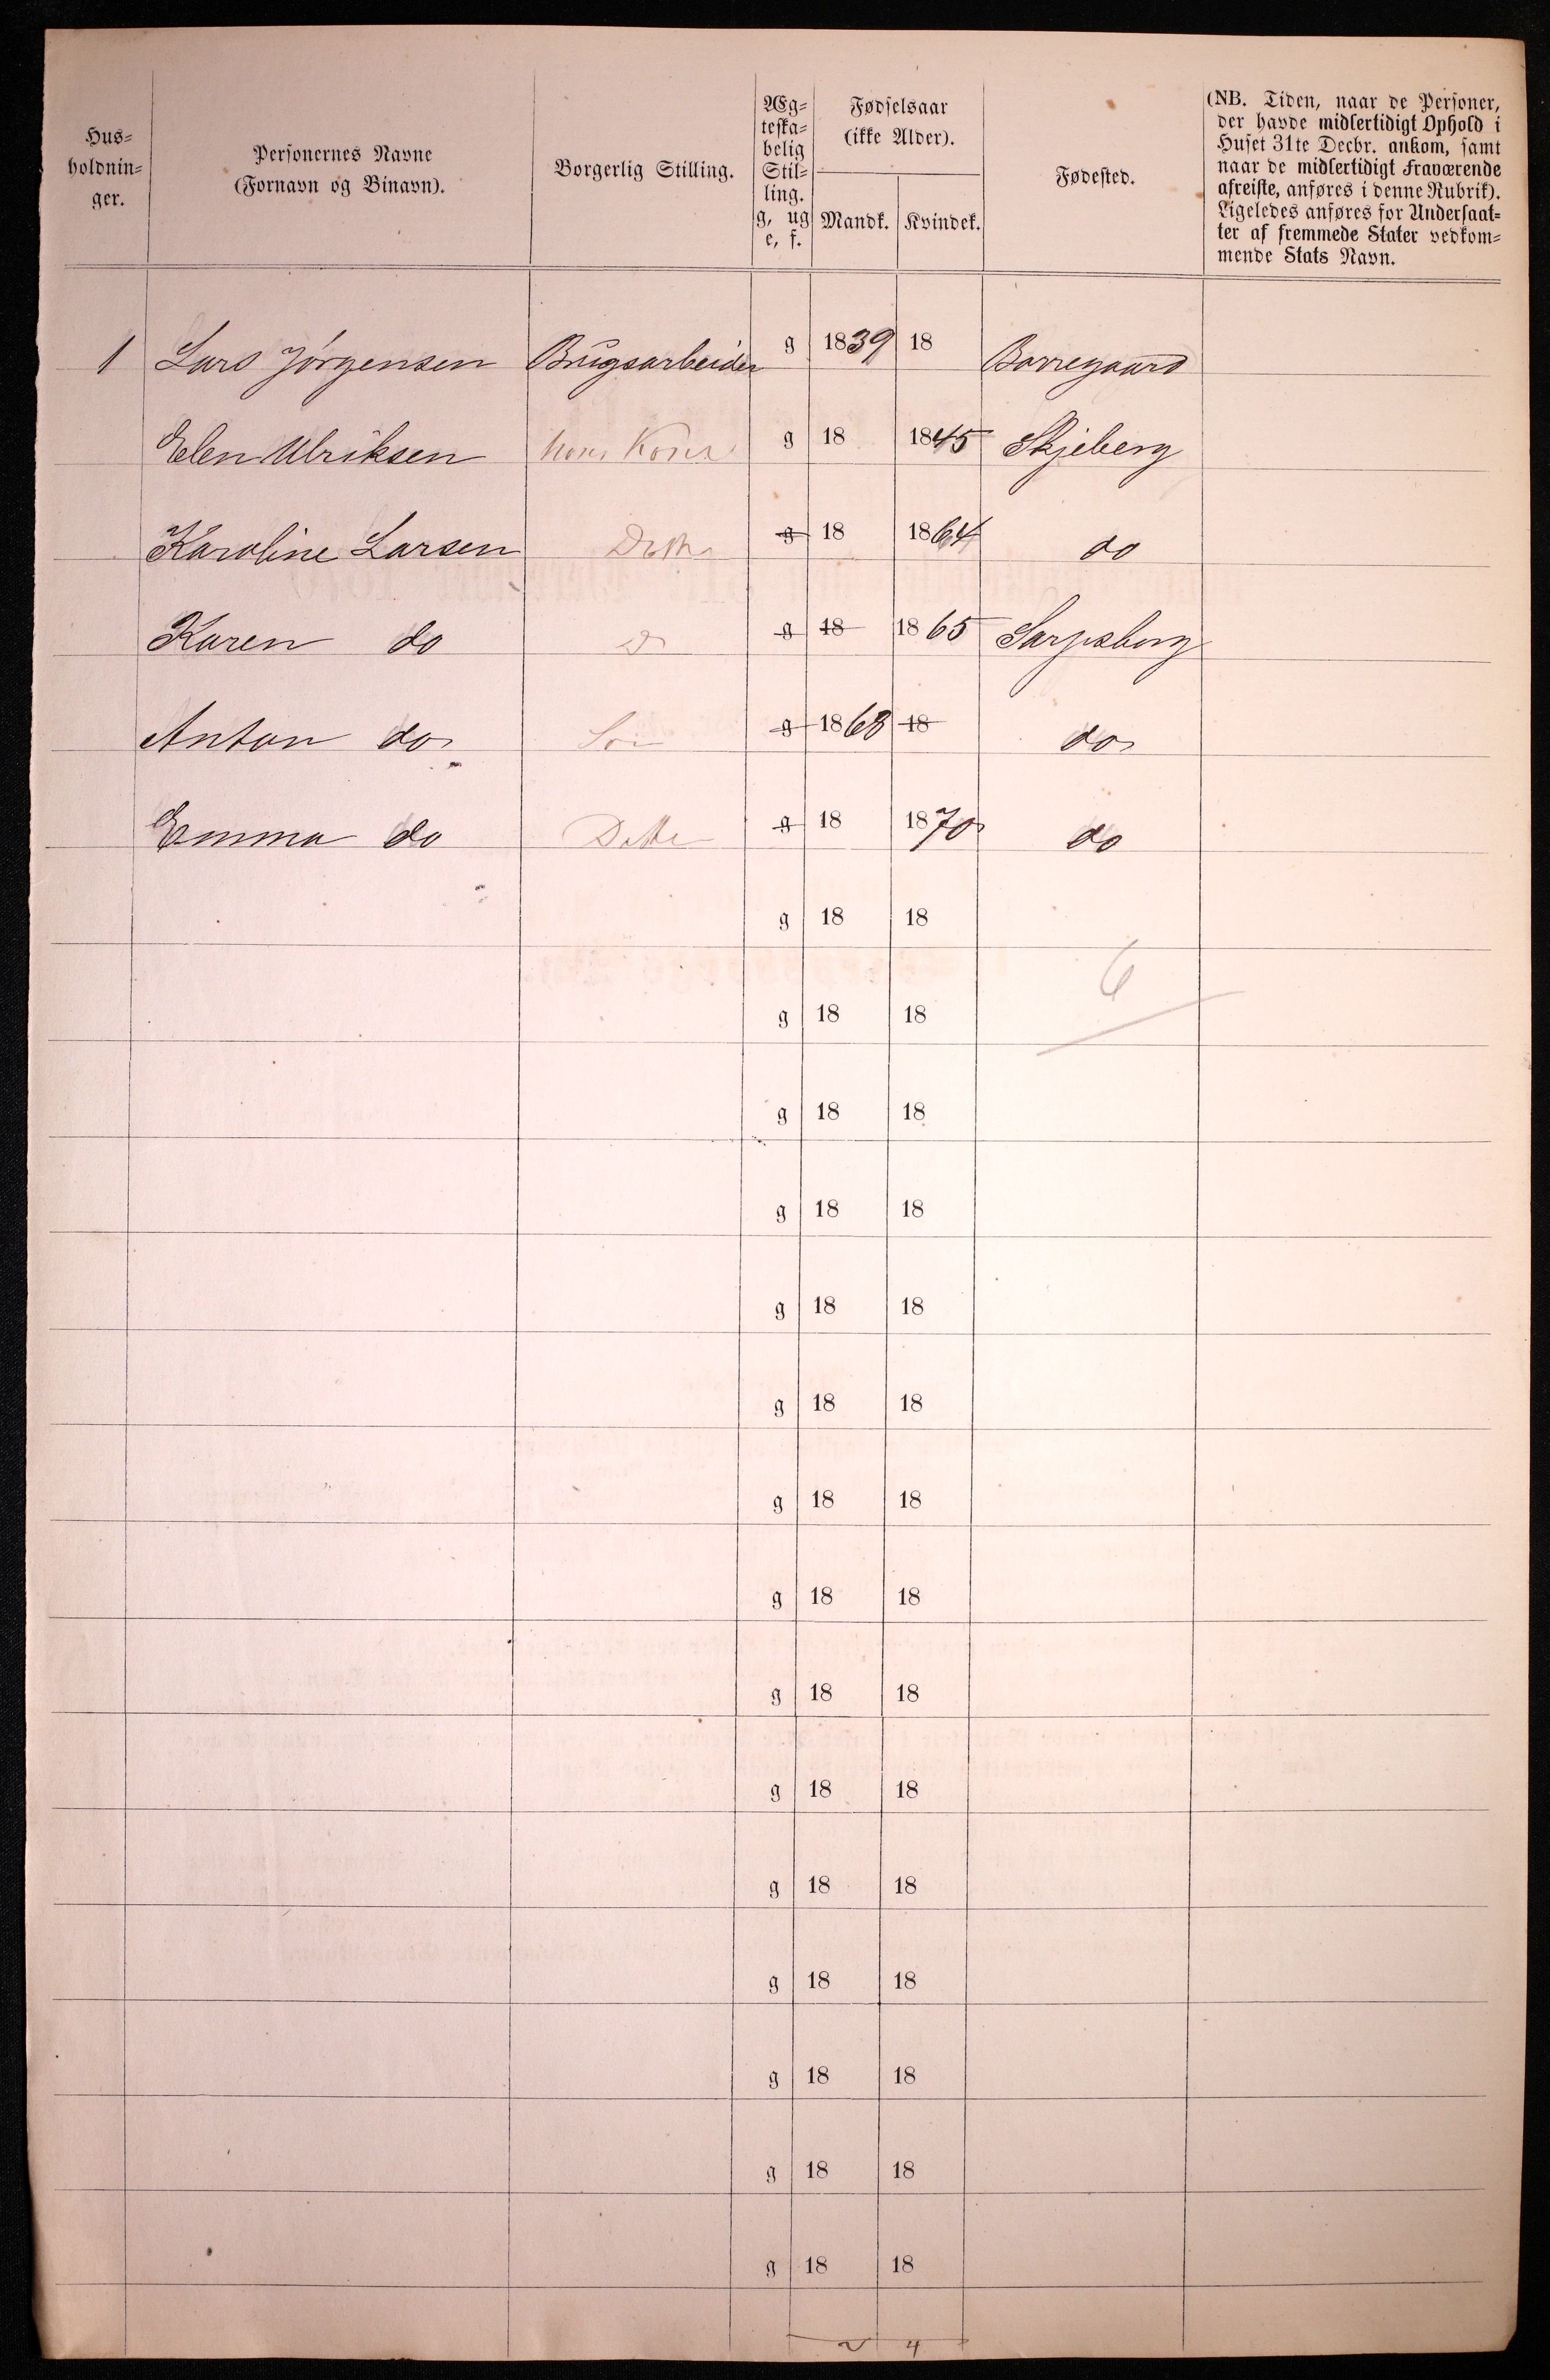 Hus-
holdnin-
ger.
Personernes Navne
(Fornavn og Binavn).
Borgerlig Stilling.
Æg-
teska-
belig
Stil-
ling.
g, ug
e, f.
Fødselsaar
(ikke Alder).
Mandk. Kvindek.
Fødested.
(NB. Tiden, naar de Personer,
der havde midlertidigt Ophold i
Huset 31te Decbr. ankom, samt
naar de midlertidigt Fraværende
afreiste, anføres i denne Rubrik).
Ligeledes anføres for Undersaat-
ter af fremmede Stater vedkom-
mende Stats Navn.
1 Lars Jörgensen Brugsarbeider g 1839 18 Borregaard
Elen Ulriksen hans Kone g 18 1845 Skjeberg
Karoline Larsen Dtter g 18 1864 do
Karen do d g 18 1865 Sarpsborg
Anton do Søn g 1868 18 do
Emma do Datter g 18 1870 do
g 18 18
6
g 18 18
g 18 18
g 18 18
g 18 18
g 18 18
g 18 18
g 18 18
g 18 18
g 18 18
g 18 18
g 18 18
g 18 18
g 18 18
g 18 18
2 4